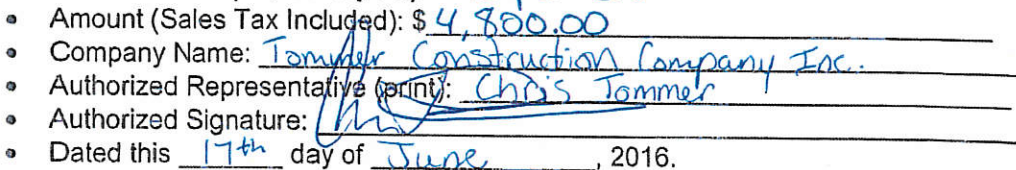 • Amount (Sales Tax Included): $ 4,800.00
• Company Name: Tommer Construction Company Inc.
• Authorized Representative (print): Chris Tommer
• Authorized Signature:
• Dated this 17th day of June, 2016.